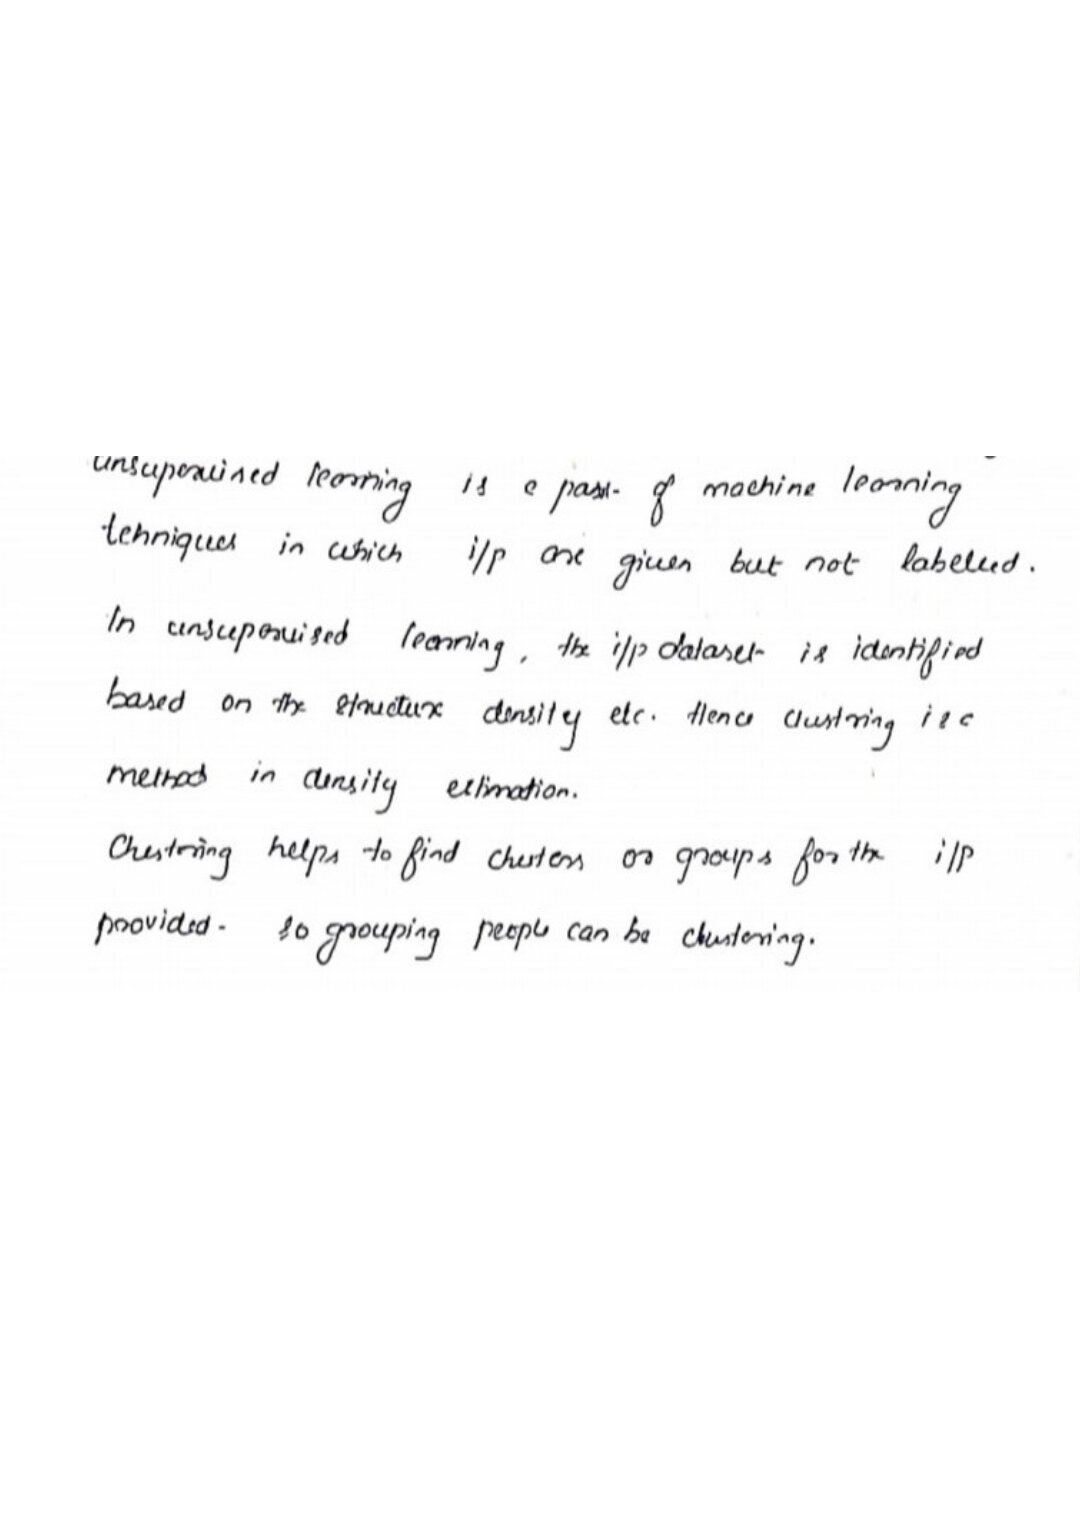 unsupervised learning is a part of machine learning
tehniques in which i/p are given but not labeled.
In unsupervised learning, the i/p dataset is identified
based on the structure density etc. Hence clustring is a
method in density estimation.
Clustering helps to find clusters or groups for the i/p
provided. So grouping people can be clustering.